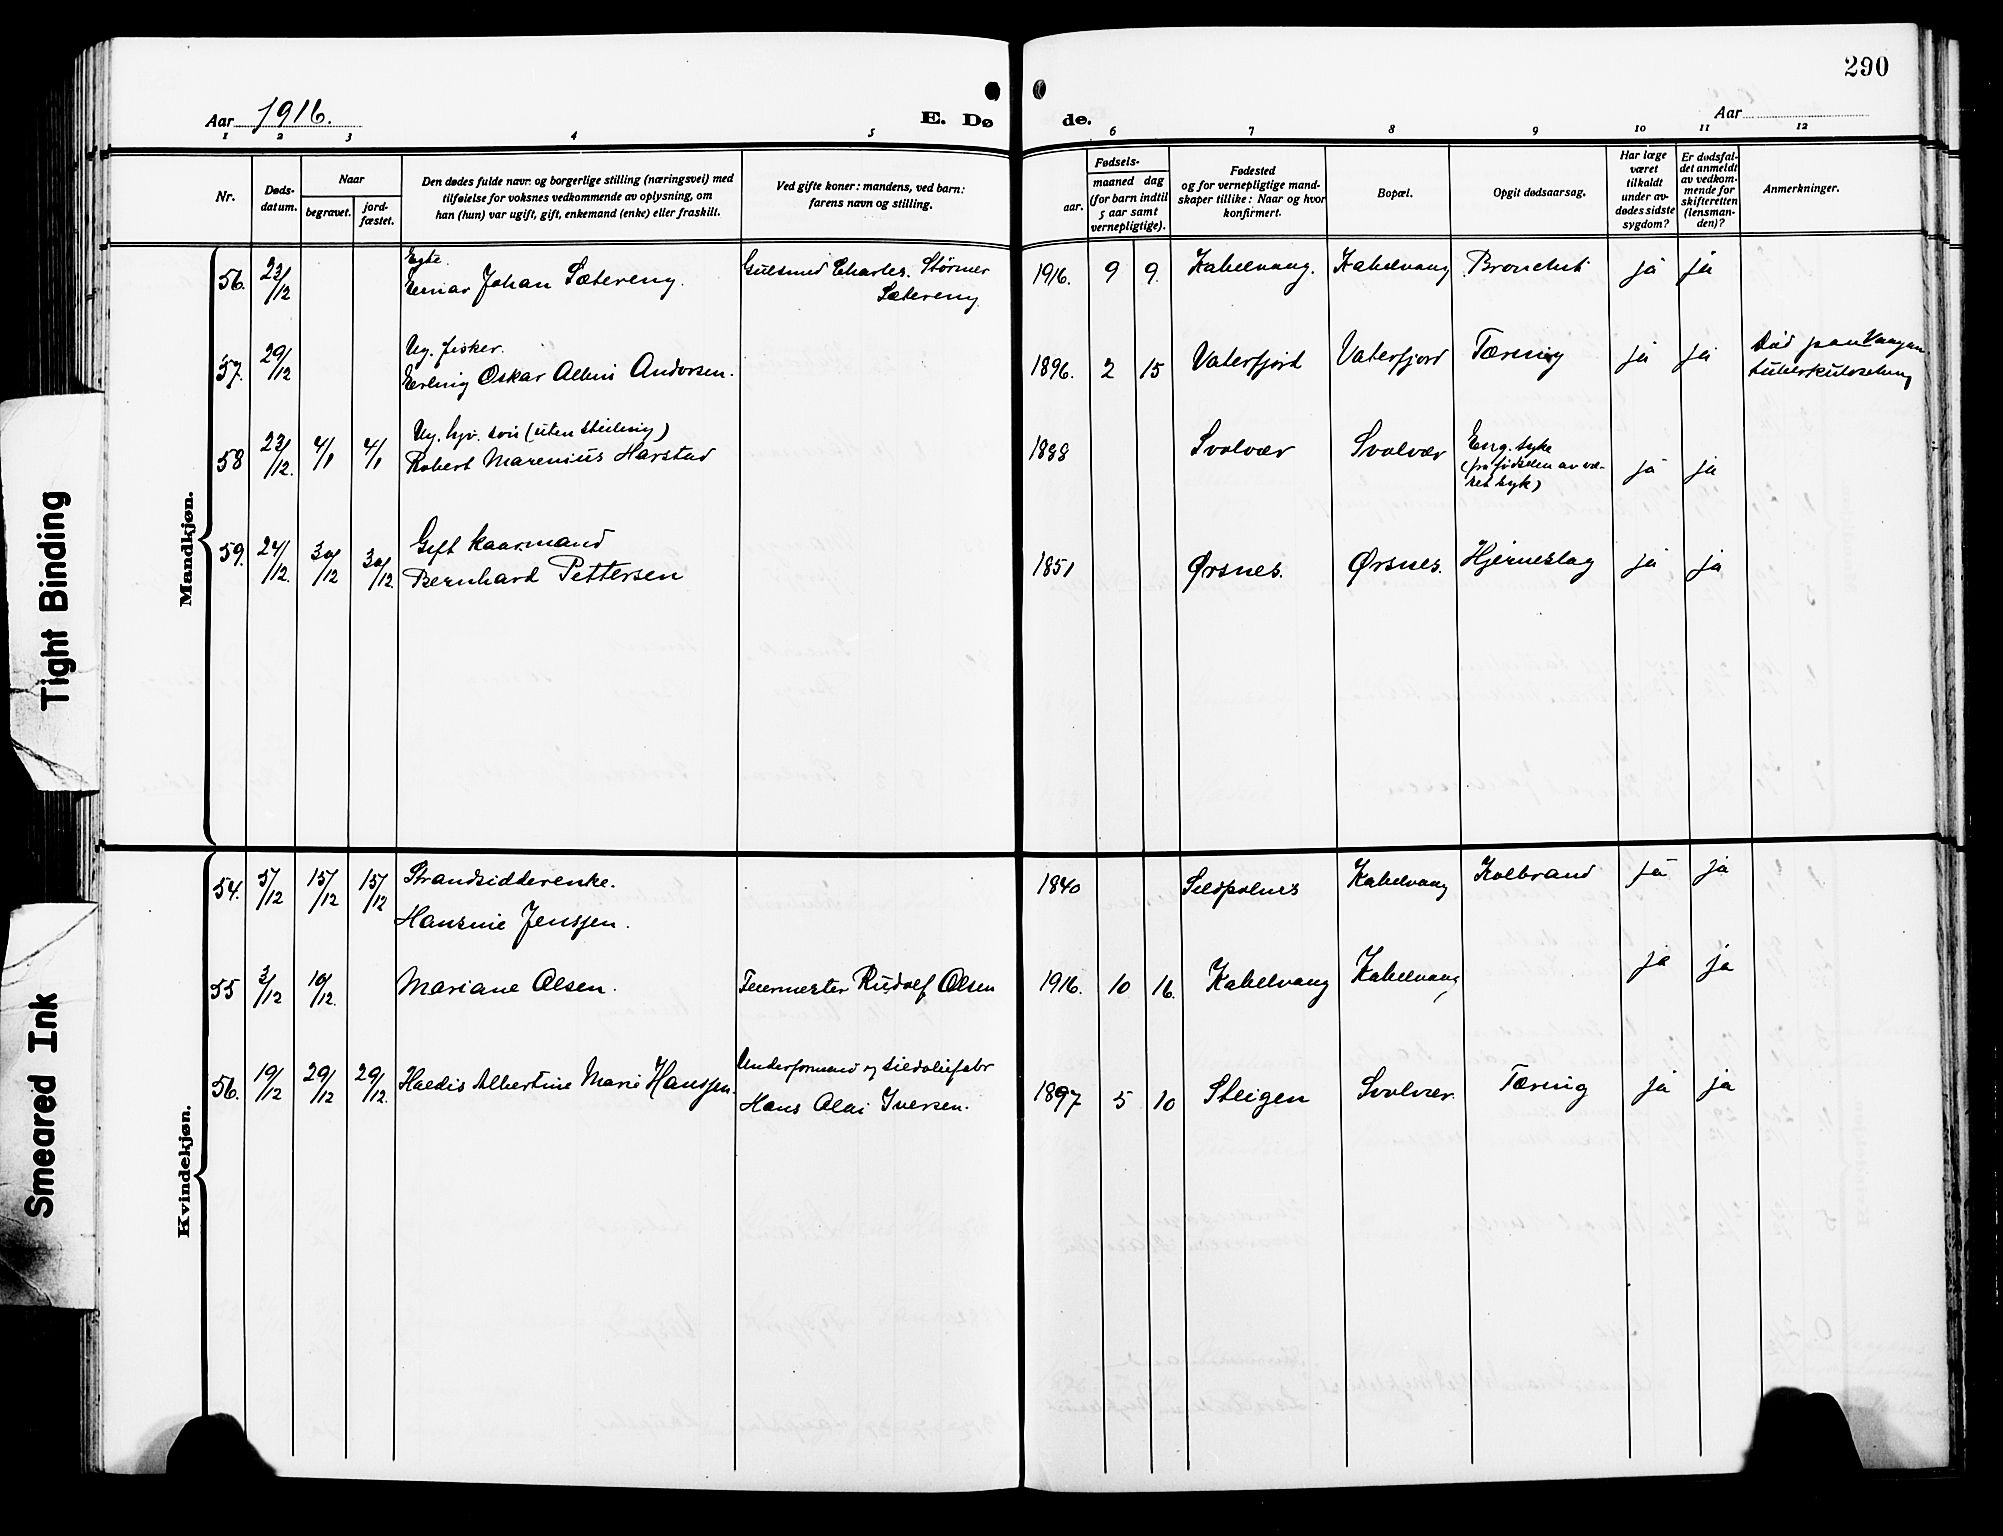 290
Aar 1916.
E. Dø
de.
Aar
1 2 3 4 5 6 7 8 9 10 11 12
Nr.
Døds-
datum.
Naar
begravet.
jord-
fæstet.
Den dødes fulde navn og borgerlige stilling (næringsvei) med
tilføielse for voksnes vedkommende av oplysning, om
han (hun) var ugift, gift, enkemand (enke) eller fraskilt.
Ved gifte koner: mandens, ved barn:
farens navn og stilling.
Fødsels-
aar.
maaned dag
(for barn indtil
5 aar samt
vernepligtige).
Fødested
og for vernepligtige mand-
skaper tillike: Naar og hvor
konfirmert.
Bopæl.
Opgit dødsaarsag.
Har læge
været
tilkaldt
under av-
dødes sidste
sygdom?
Er dødsfal-
det anmeldt
av vedkom-
mende for
skifteretten
(lensman-
den)?
Anmerkninger.
Mandkjøn.
Egte.
56. 23/12 Einar Johan Sætereng. Gulsmed Charles Størmer
Sætereng.
1916. 9 9. Kabelvaag. Kabelvaag Bronchit ja ja
Ug. fisker.
57. 29/12 Erling Oskar Albin Andorsen. 1896. 2 15 Vaterfjord Vaterfjord Tæring ja ja
Død paa Vaagan
tuberkulosehjem
Ug. hjv. søn (uten stilling)
58 23/12. 4/1 4/1 Robert Marenius Harstad 1888 Svolvær Svolvær Eng. syke
(fra fødselen av væ-
ret syk) ja ja
Gift kaarmand
59. 24/12. 30/12 30/12. Bernhard Pettersen 1851 Ørsnes. Ørsnes. Hjerneslag ja ja
Kvindekjøn.
54. 5/12 15/12 15/12 Strandsidderenke.
Hansine Jenssen.
1840 Sildpolnes Kabelvaag Kolbrand ja ja
55 3/12 10/12. Mariane Olsen. Feiermester Rudolf Olsen 1916. 10 16. Kabelvaag Kabelvaag ja ja
56. 19/12 29/12 29/12. Haldis Albertine Marie Hanssen. Underformand v sildoliefabr
Hans Olai Iversen.
1897 5 10 Steigen Svolvær. Tæring ja ja
Tight Binding
Smeared Ink